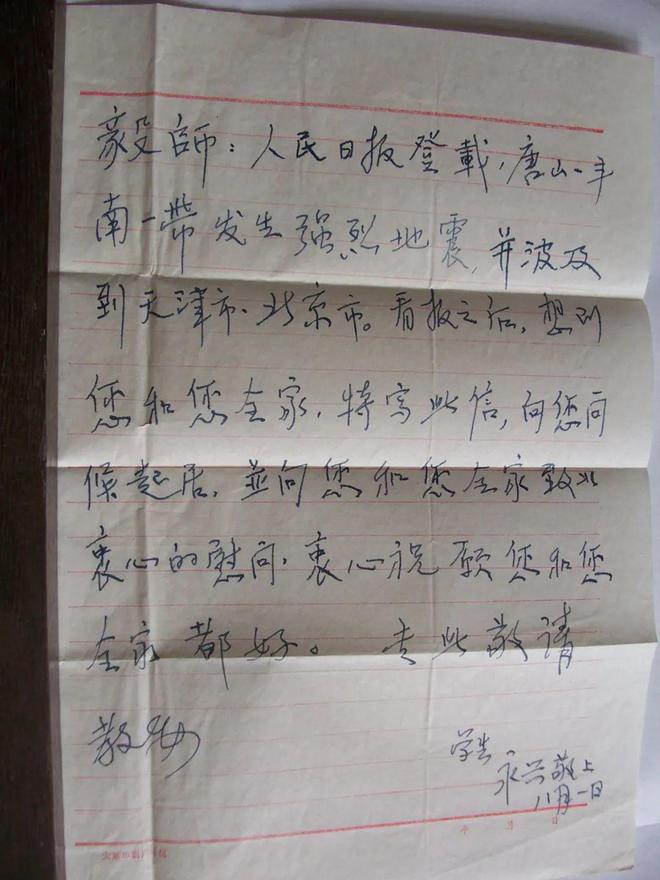 毅师：人民日报登載，唐山一丰
南一带发生强烈地震，并波及
到天津市、北京市。看报之后，想到
您和您全家，特写此信，向您问
候起居，並向您和您全家致以
衷心的慰问，衷心祝愿您和您
全家都好。 专此敬请
教安
学生
永兴敬上
八月一日
年 月 日